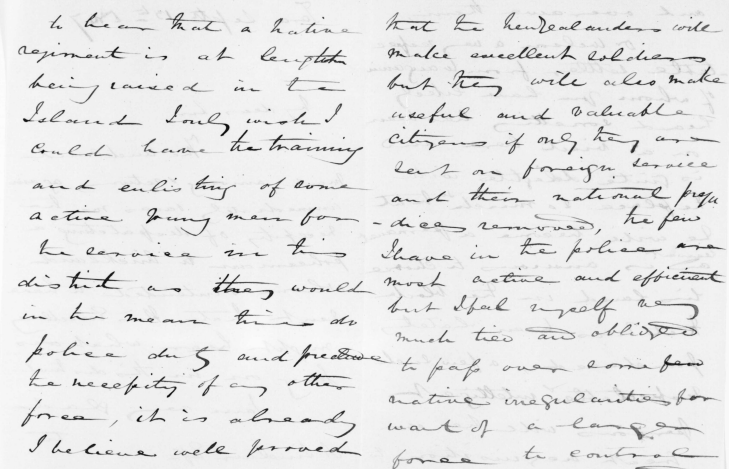 to hear that a native
regiment is at length
being raised in the
Island I only wish I
could have the training
and enlisting of some
active young men for
the service in this
district as they would
in the mean time do
police duty and
the necessity of any other
force, it is already
I believe well proved
that the New Zealanders will
make excellent soldiers
but they will also make
useful and valuable
citizens if only they are
sent on foreign service
and their national preju
-dices removed, the few
I have in the police are
most active and efficient
but I feel myself very
much tied and obliged
to pass over some few
native irregularities for
want of a larger
force to control